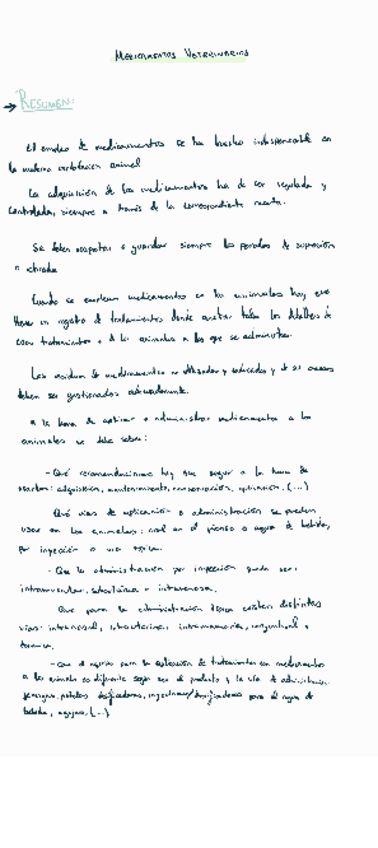 MEDICAMENTOS VETERINARIOS
→ RESUMEN:
El empleo de medicamentos se ha hecho indispensable en
la moderna explotación animal
La adquisición de los medicamentos ha de ser regulada y
controlada, siempre a través de la correspondiente receta.
Se deben respetar o guardar siempre los periodos de supresión
o retirada
Cuando se emplean medicamentos en los animales hay que
llevar un registro de tratamientos donde anotar todos los detalles de
esos tratamientos o de los animales a los que se administran.
Los residuos de medicamentos no utilizados y caducados y de sus envases
deben ser gestionados adecuadamente.
A la hora de aplicar o administrar medicamentos a los
animales se debe saber:
- Qué recomendaciones hay que seguir a la hora de
: adquisición, mantenimiento, conservación, aplicación, (...)
Qué vías de aplicación o administración se pueden
usar en los animales: oral en el pienso o agua de bebida,
por inyección o vía tópica.
- Que la administración por inyección puede ser:
intramuscular, subcutánea o intravenosa.
Que para la administración tópica existen distintas
vías: intranasal, intrauterina, intramamaria, conjuntival o
- Que el equipo para la aplicación de tratamientos con medicamentos
a los animales es diferente según sea el producto y la vía de administración:
jeringas, pistolas dosificadoras, inyectores/dosificadores para el agua de
bebida, agujas, (...)